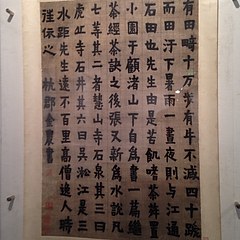 有田畸十萬步有牛不減四十蹏
而田汙下暑雨一晝夜則與江通
石田也先生由是苦飢嗜茶荈置
小園于顧渚山下自爲一篇繼
茶經茶訣之後張又新爲水說凡
七等其二者慧山寺石泉其三曰
虎丘寺石井其六曰吳淞江是三
水距先生遠不百里高僧逸人時
之 杭郡金農書